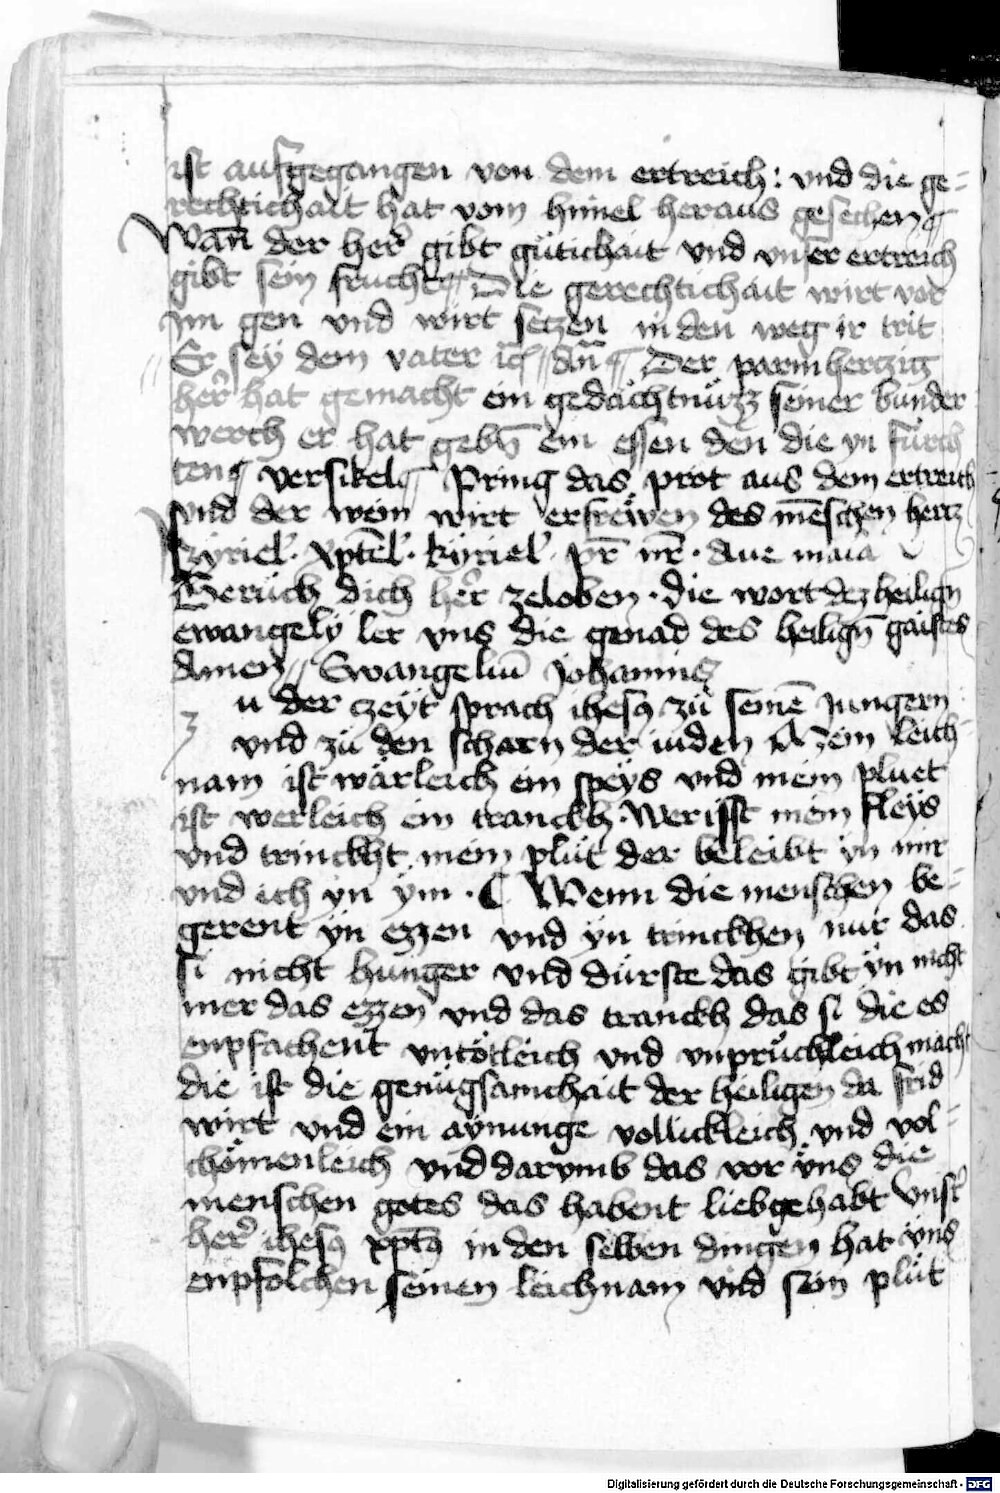 ist aufgegangen von dem ertreich: und die ge-
rechtichait hat vom himel heraus gesechen
Wan̄ der her̄ gibt gu̇tichait vnd vnser ertreich
gibt sein frucht Die gerechtichait wirt vor
Im gen vnd wirt setzen in den weg ir trit
Er sey dem vater dn̄ Der parmhertzig
her̄ hat gemacht ein gedächtnüzz seiner bunder
werch er hat gebn̄ ein essen den die yn furch
ten versikel Pring das prot aus dem ertreich
vnd der wein wirt erfrewen des mēschen hertz
kyriel. xp̄tel. kyriel. pr̄ nr̄. aue maia
Geruch dich her̄ zeloben. die wort dez heilign
ewangely ler vns die genad des heilign̄ gaistes
Amen Ewangeliū Johannis
zu der czeyt sprach ihesꝯ zů seinē Jungern
vnd zü den scharn der iuden Mein leich-
nam ist wärleich ein speys vnd mein pluet
ist werleich ein tranckh. Wer isst mein fleys
vnd trinckht mein plut der beleibt yn mir
vnd ich yn ym. ¶ Wenn die menschen be-
gerent yn ezzen vnd yn trinckhen nur das
si nicht hunger vnd dürste das gibt yn nicht
mer das ezzen vnd das tranckh das si die es
enpfachent vntötleich vnd vnprüchleich macht
die ist die genügsamchait der heiligen da frid
wirt vnd ein aynunge vollickleich vnd vol-
chömenleich vnd darvmb das vor vns die
menschen gotes das habent liebgehabt vnsr̄
her̄ ihesꝯ xp̄tꝯ in den selben dingen hat vns
enpfolchen seinen leichnam vnd sein plüt
Digitalisierung gefördert durch die Deutsche Forschungsgemeinschaft - DFG